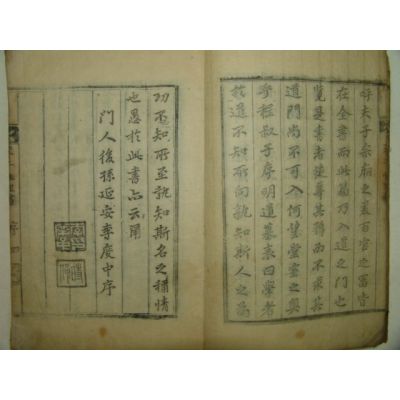 呼夫子宗廟之美百官之富皆
在全書而此篇乃入道之門也
覽是書者徒尊其而不求其
道門尚不可入何望堂室之奧
乎程叔子序明道墓表曰學者
於道不知所向孰知斯人之爲
功不知所至孰知斯名之稱情
也愚於此書亦云爾
門人後孫延安李度中序
序 四